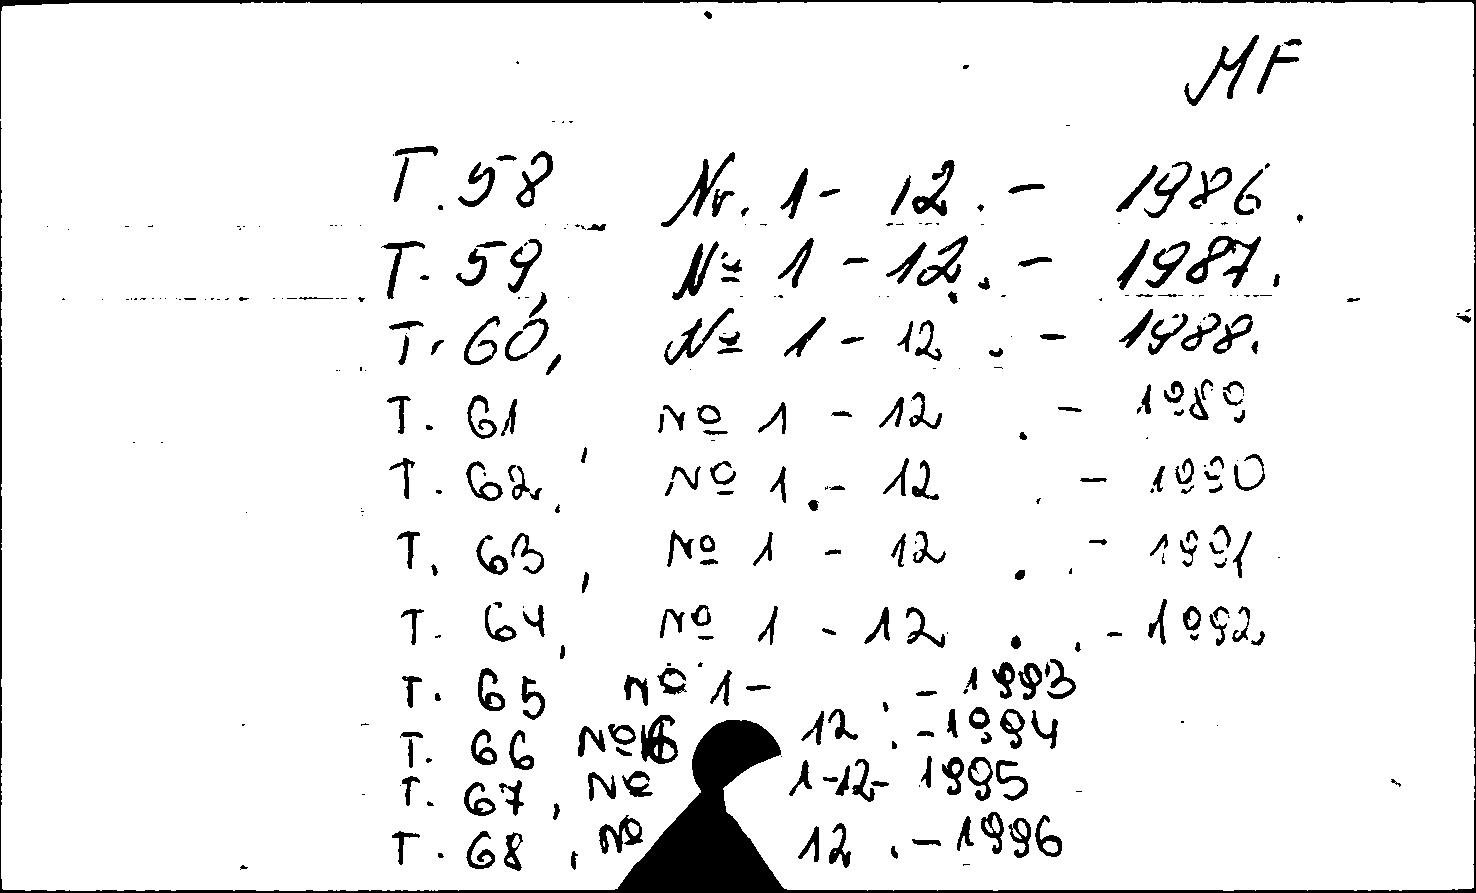 MF
T. 58 Nr. 1 - 12. - 1986.
T. 59, № 1 - 12. - 1987.
T. 60, № 1 - 12. - 1988.
T. 61, № 1 - 12. - 1989
T. 62, № 1 - 12. - 1990
T. 63, № 1 - 12. - 1991
T. 64, № 1 - 12. - 1992
T. 65 № 1 - . - 1993
T. 66 № 12. - 1994
T. 67, № 1-12- 1995
T. 68, № 12. - 1996